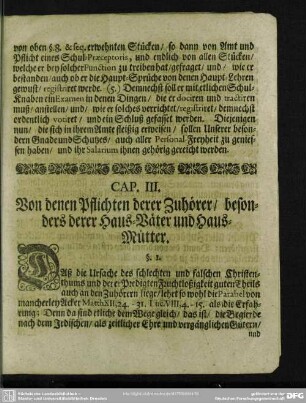 von oben §. 8. & seq. erwehnten Stücken/ so dann von Amt und
Pflicht eines Schul-Præceptoris, und endlich von allen Stücken/
welche er bey solcher Function zu treiben hat/ gefraget/ und/ wie er
bestanden/ auch ob er die Haupt-Sprüche von denen Haupt-Lehren
gewust/ registriret werde. (5.) Demnechst soll er mit etlichen Schul-
Knaben ein Examen in denen Dingen/ die er dociren und tractiren
muß/ anstellen/ und/ wie er solches verrichtet/ registriret/ demnechst
ordentlich votiret/ und ein Schluß gefasset werden. Diejenigen
nun/ die sich in ihrem Amte fleissig erweisen/ sollen Unserer beson-
dern Gnade und Schutzes/ auch aller Personal Freyheit zu genies-
sen haben/ und ihr Salarium ihnen gehörig gereicht werden.
CAP. III.
Von denen Pflichten derer Zuhörer/ beson-
ders derer Haus-Väter und Haus-
Mütter.
§. 1.
Daß die Ursache des schlechten und falschen Christen-
thums und der Predigten Fruchtloßigkeit guten Theils
auch an den Zuhörern liege/ lehret so wohl die Parabel von
mancherley Acker Matth. XIII, 24. - 31. Luc. VIII, 4. - 15. als die Erfah-
rung: Denn da sind etliche dem Wege gleich/ das ist/ die Begierde
nach dem Irdischen/ als zeitlicher Ehre und vergänglichen Gütern/
und